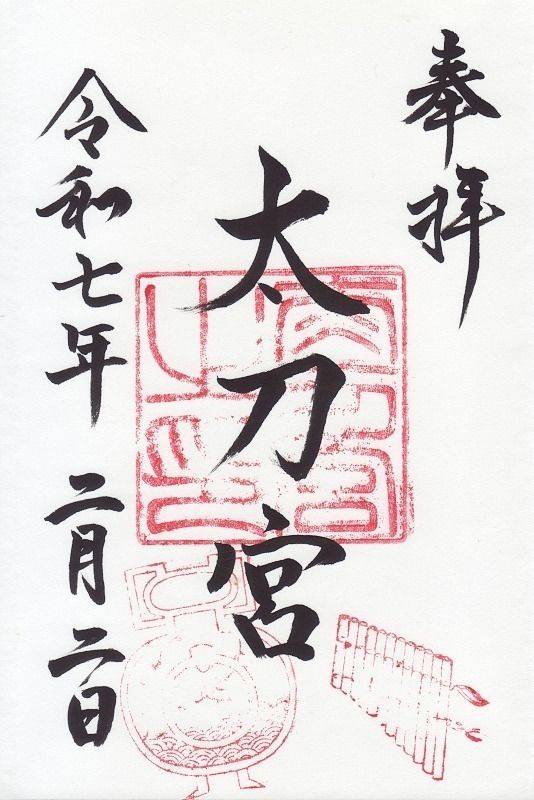 奉拝
太刀宮
令和七年 二月二日